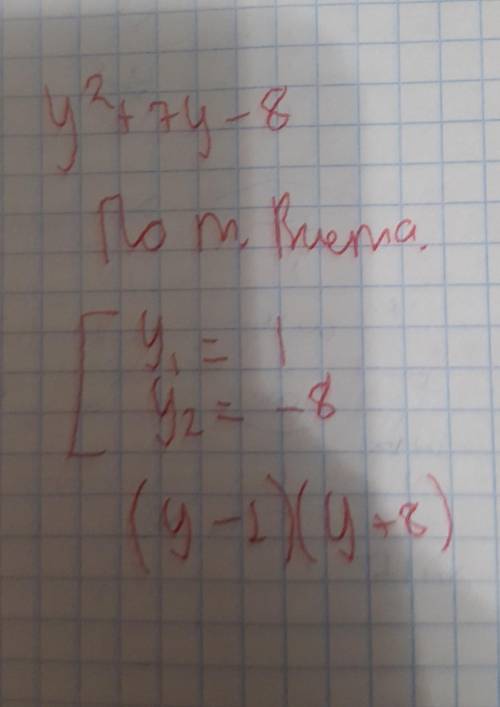 y²+7y-8
По т. Виета.
[ y₁ = 1
y₂ = -8
(y-1)(y+8)